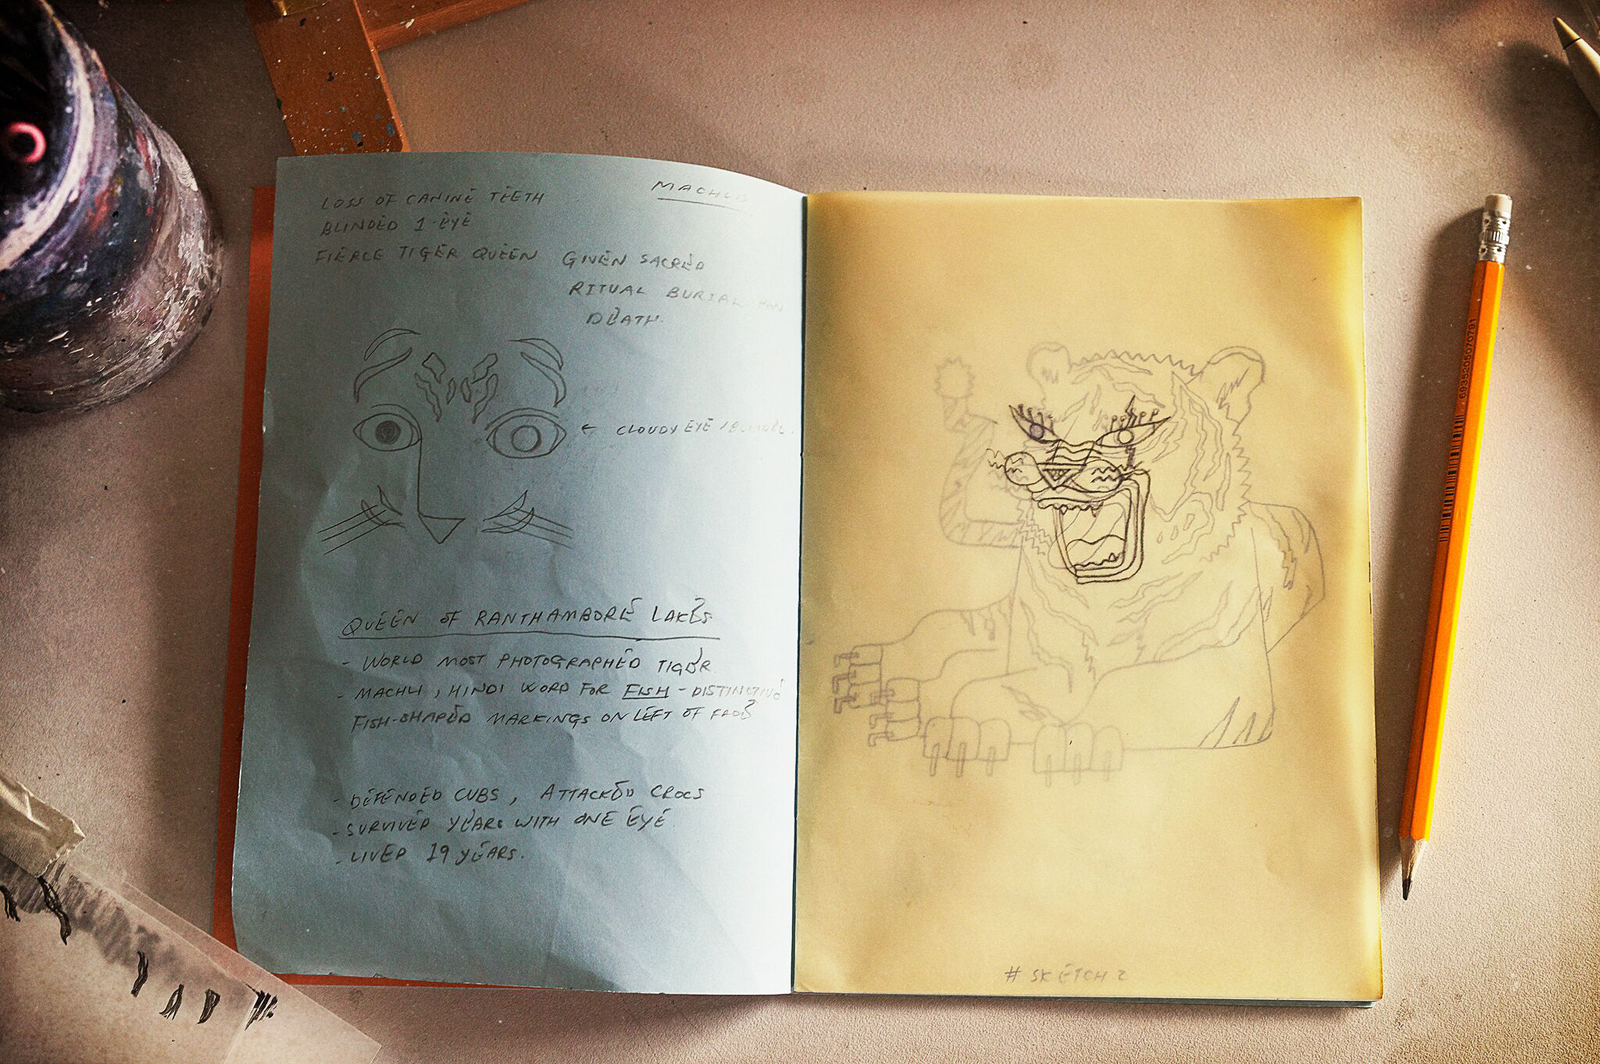 MACHLI
LOSS OF CANINE TEETH
BLINDED 1 EYE
FIERCE TIGER QUEEN
GIVEN SACRED
RITUAL BURIAL
DEATH.
← CLOUDY EYE
QUEEN OF RANTHAMBORE LAKES
- WORLD MOST PHOTOGRAPHED TIGER
- MACHLI, HINDI WORD FOR FISH - DISTINCTIVE
FISH-SHAPED MARKINGS ON LEFT OF FACE
- DEFENDED CUBS, ATTACKED CROCS
- SURVIVED YEARS WITH ONE EYE
- LIVED 19 YEARS.
# SKETCH 2